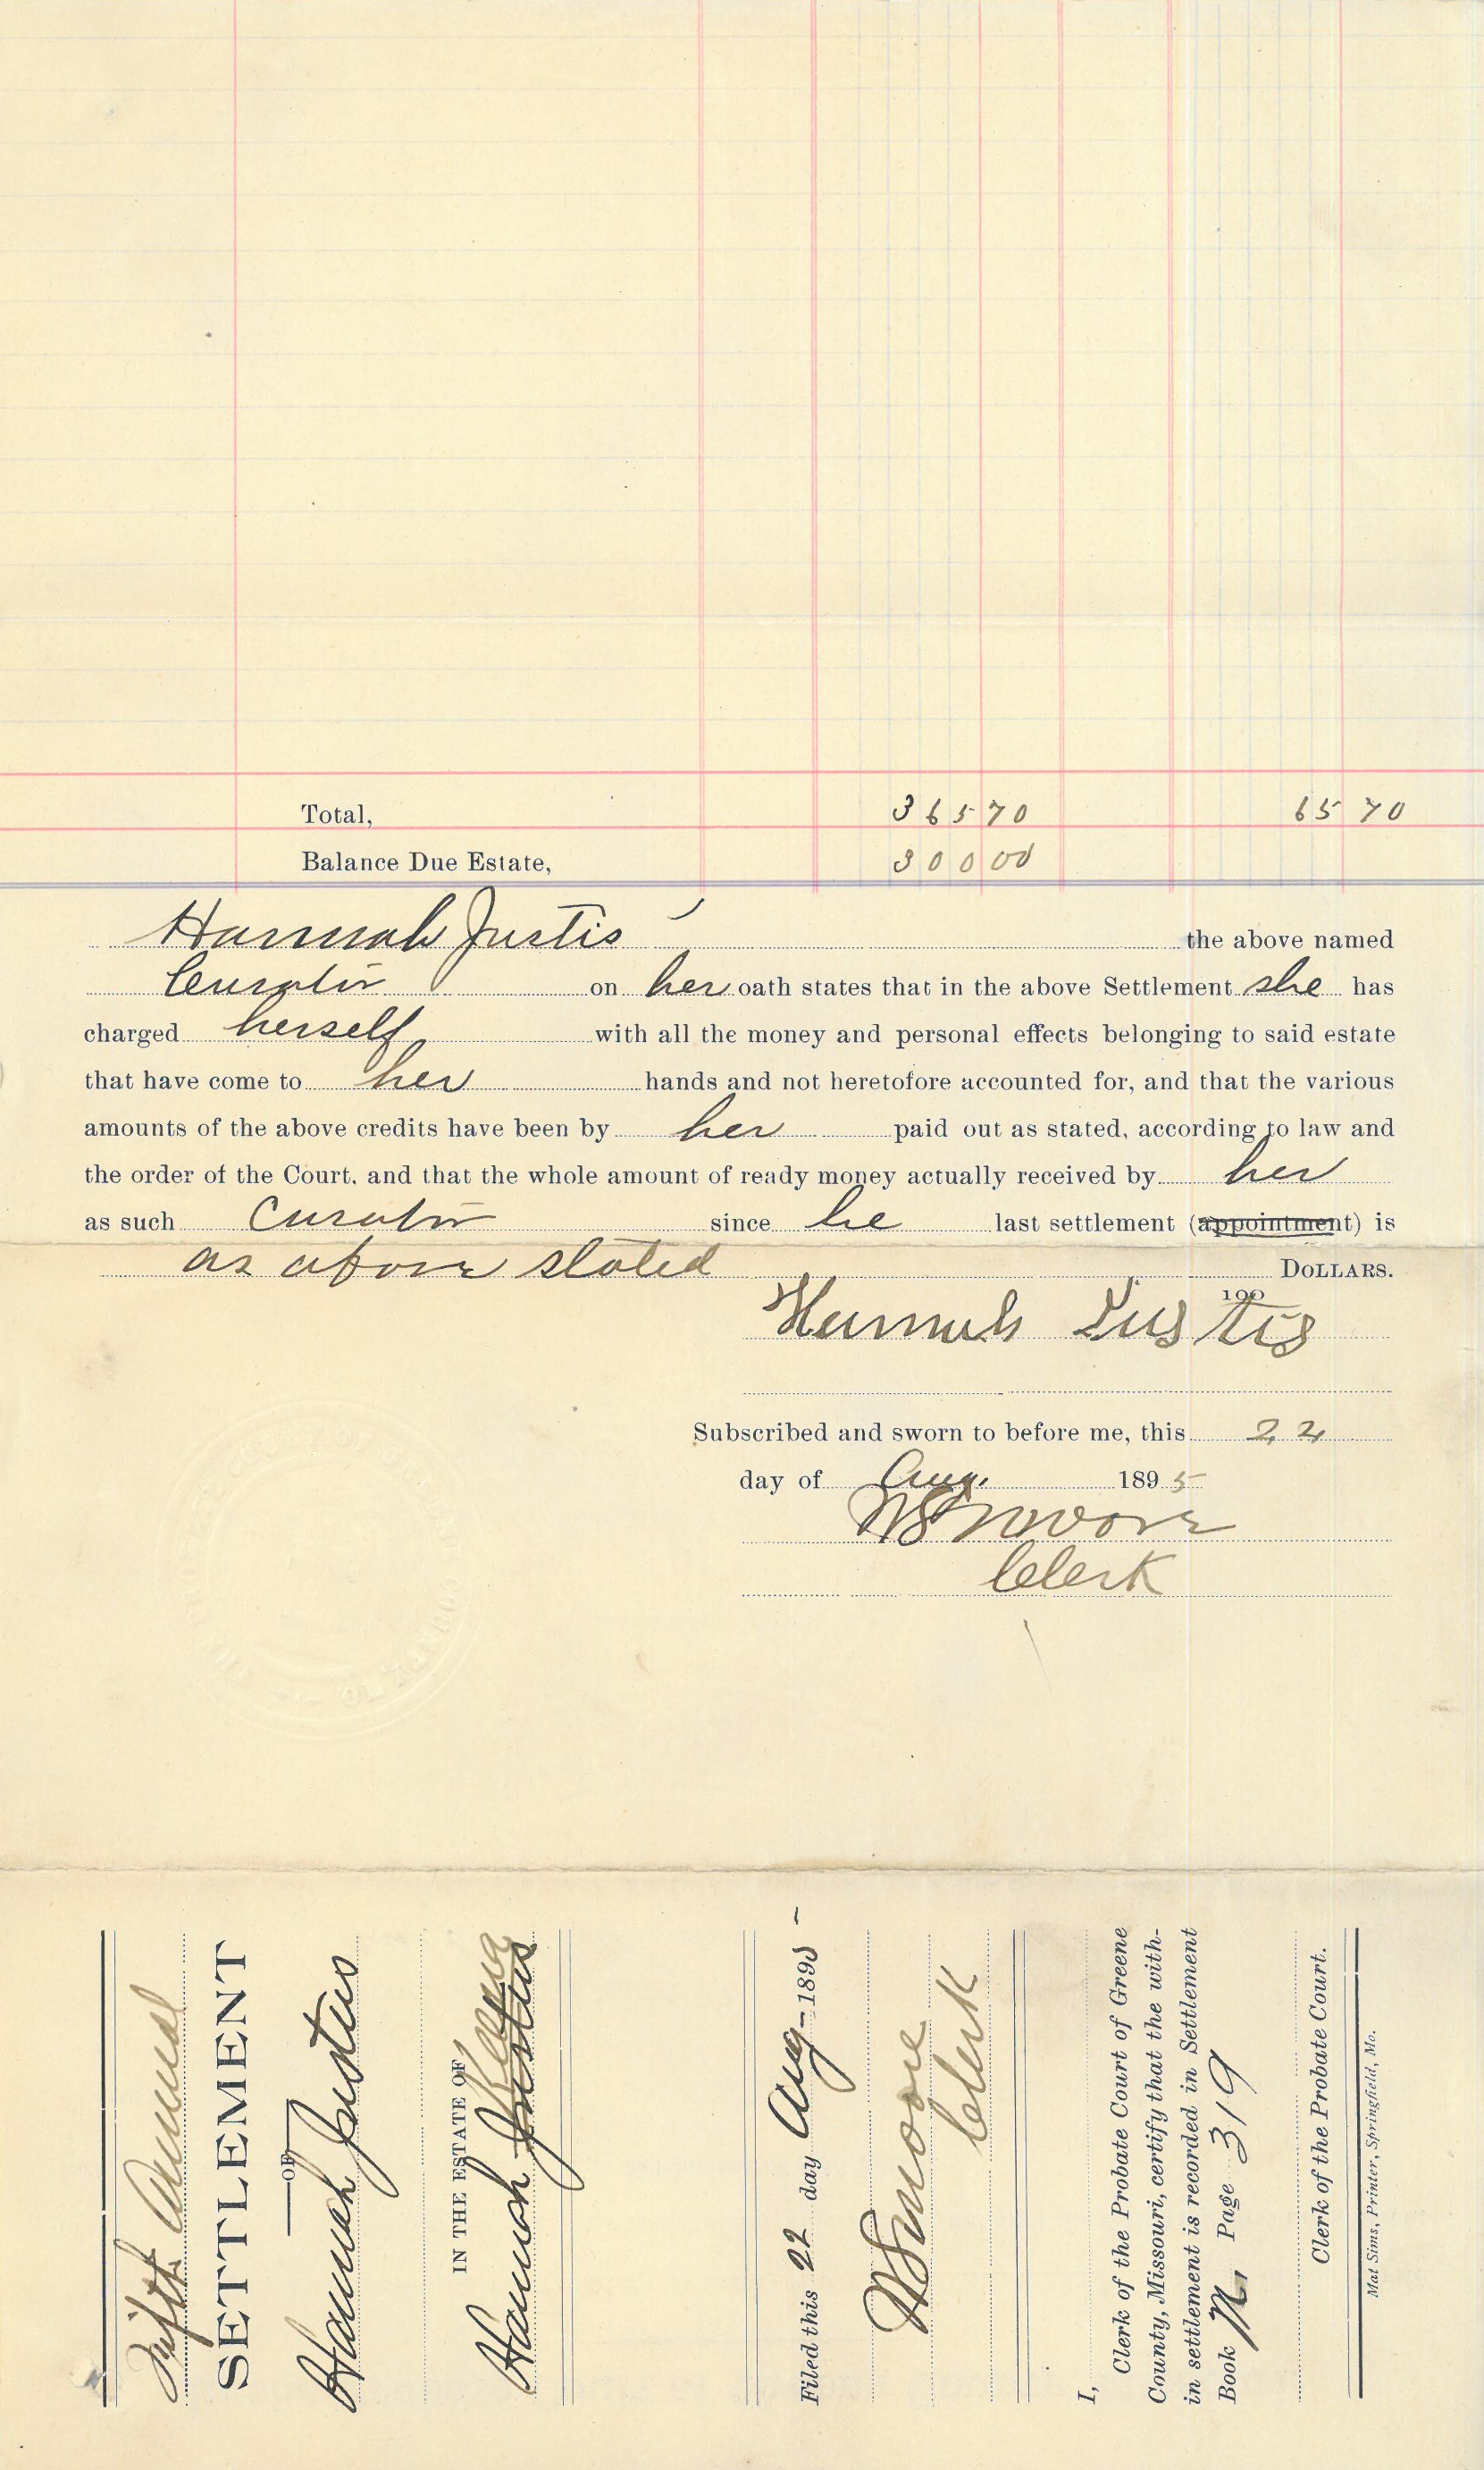 Total, 365 70 65 70
Balance Due Estate, 300 00
Hannah Justis the above named
Curator on her oath states that in the above Settlement she has
charged herself with all the money and personal effects belonging to said estate
that have come to her hands and not heretofore accounted for, and that the various
amounts of the above credits have been by her paid out as stated, according to law and
the order of the Court, and that the whole amount of ready money actually received by her
as such Curator since he last settlement (appointment) is
as above stated DOLLARS.
100
Hannah Justis
Subscribed and sworn to before me, this 22
day of Aug. 1895
WS Moore
Clerk
Fifth Annual
SETTLEMENT
—OF—
Hannah Justus
IN THE ESTATE OF
Hannah Justus
Filed this 22 day Aug - 1895 -
WS Moore
Clerk
I,
Clerk of the Probate Court of Greene
County, Missouri, certify that the with-
in settlement is recorded in Settlement
Book N, Page 319
Clerk of the Probate Court.
Mat Sims, Printer, Springfield, Mo.